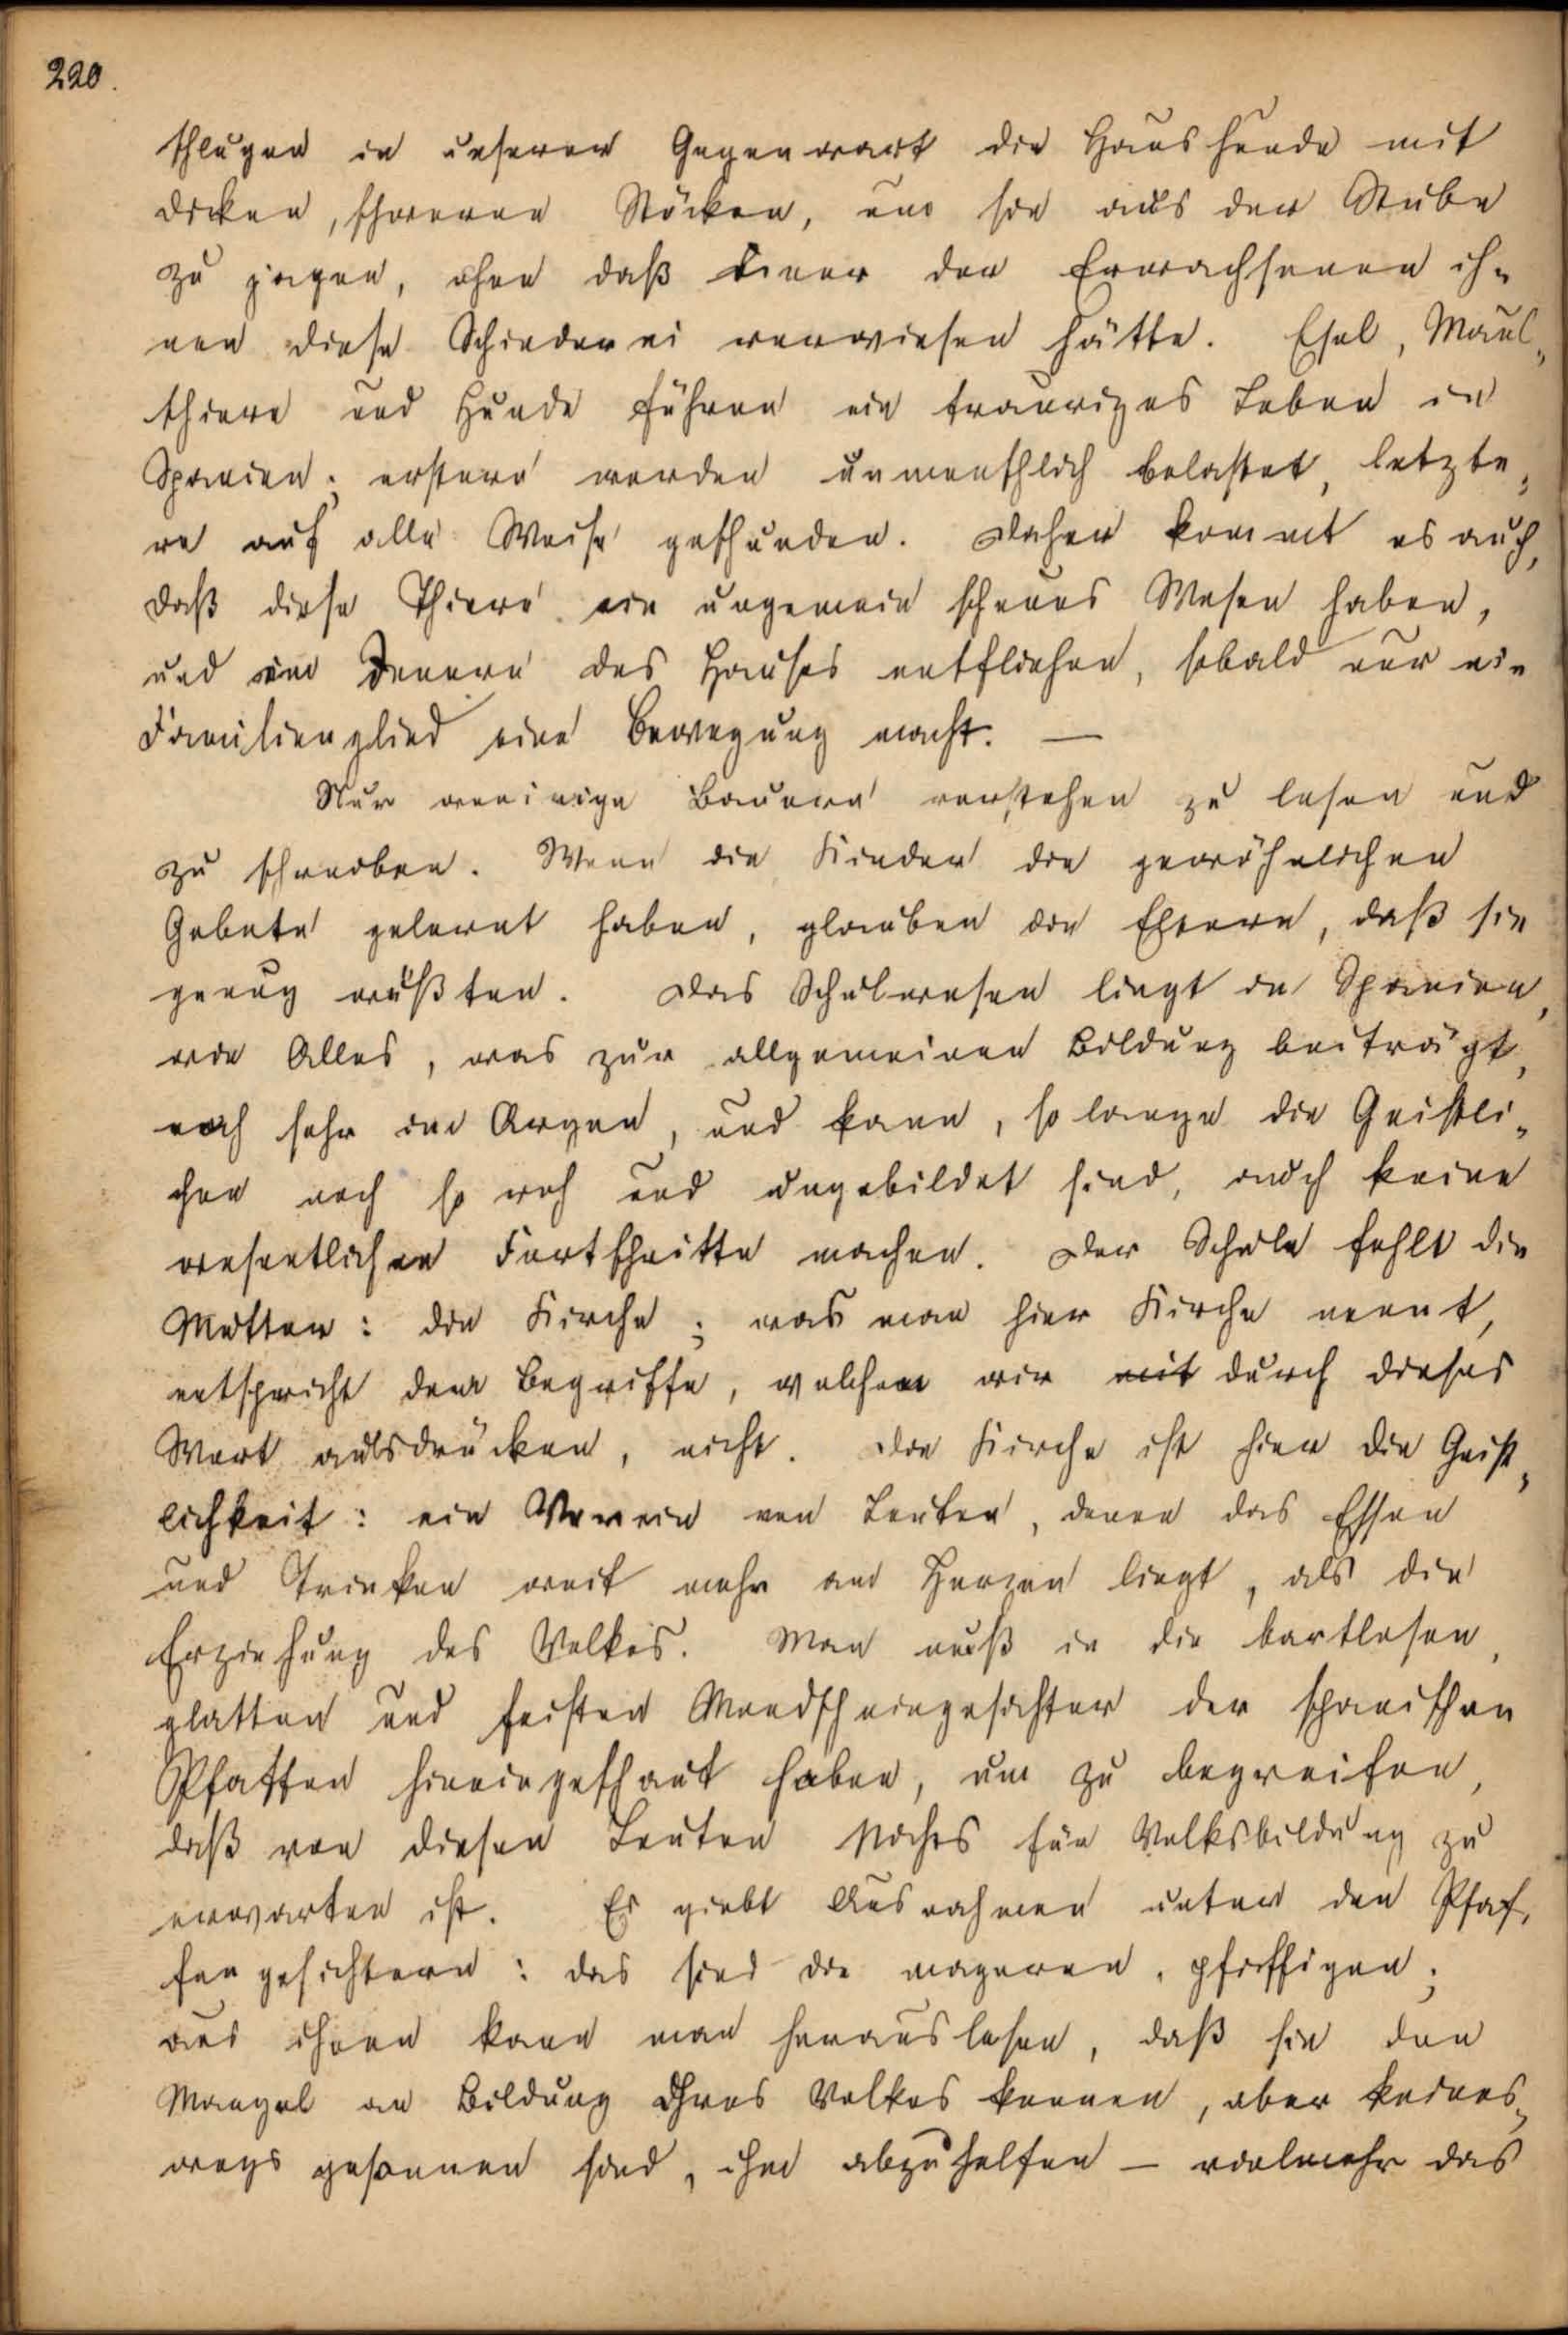 220.
schlugen in unserer Gegenwart die Haushunde mit
dicken, schweren Stöcken, um sie aus der Stube
zu jagen, ohne daß einer der Erwachsenen ih-
nen diese Schinderei verwiesen hätte. Esel, Maul-
thiere und Hunde führen ein trauriges Leben in
Spanien; erstere werden unmenschlich belastet, letzte-
re auf alle Weise geschunden. Daher kommt es auch,
daß diese Thiere ein ungemein scheues Wesen haben,
und im Innern des Hauses entfliehen, sobald nur ein
Familienglied eine Bewegung macht. —
Nur wenige Bauern verstehen zu lesen und
zu schreiben. Wenn die Kinder die gewöhnlichen
Gebete gelernt haben, glauben die Eltern, daß sie
genug wüßten. Das Schulwesen liegt in Spanien,
wie Alles, was zur allgemeinen Bildung beiträgt,
noch sehr im Argen, und kann, so lange die Geistli-
chen noch so roh und ungebildet sind, auch keine
wesentlichen Fortschritte machen. Der Schule fehlt die
Mutter: die Kirche; was man hier Kirche nennt,
entspricht dem Begriffe, welchen wir mit durch dieses
Wort ausdrücken, nicht. Die Kirche ist hier die Geist-
lichkeit: ein Verein von Leuten, denen das Essen
und Trinken weit mehr am Herzen liegt, als die
Erziehung des Volkes. Man muß in die bartlosen,
glatten und feisten Mondscheingesichter der spanischen
Pfaffen hineingeschaut haben, um zu begreifen,
daß von diesen Leuten Nichts für Volksbildung zu
erwarten ist. Es giebt Ausnahmen unter den Pfaf-
fengesichtern: das sind die mageren, pfiffigen;
aus ihnen kann man herauslesen, daß sie den
Mangel an Bildung ihres Volkes kennen, aber keines-
wegs gesonnen sind, ihm abzuhelfen — vielmehr das